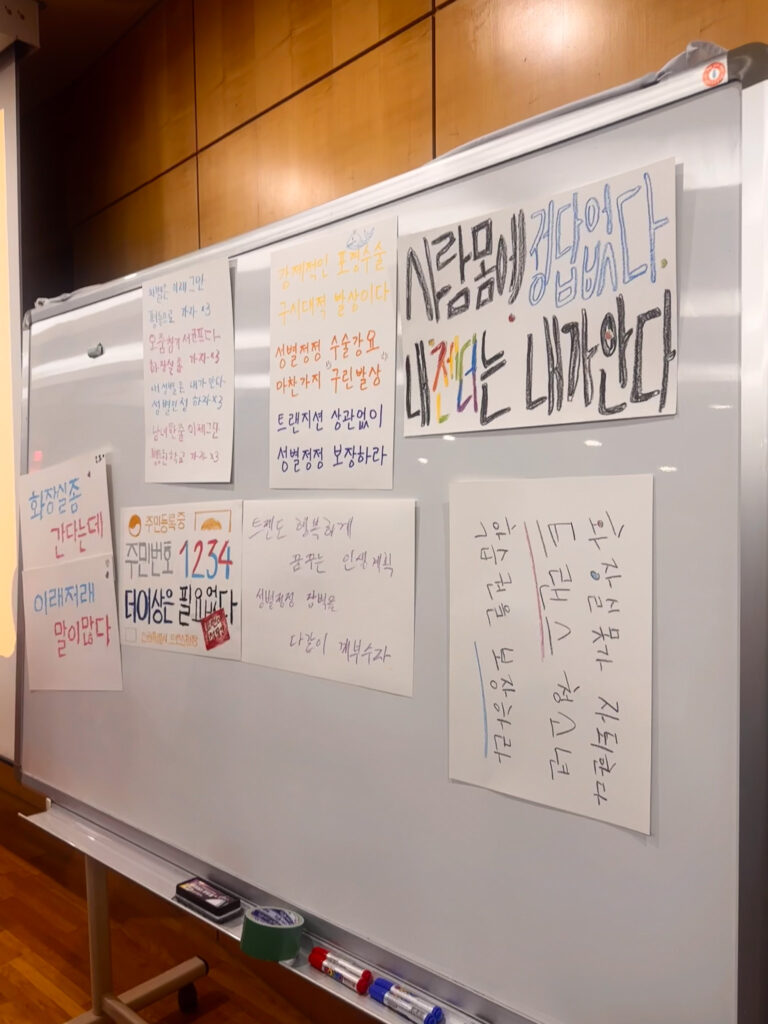 차별은 이제그만
평등으로 가자 ×3
오줌참기 서글프다
화장실을 가자 ×3
내성별은 내가안다
성별정정 하자 ×3
남녀한줄 이제그만
가자 ×3
강제적인 포정수술
구시대적 발상이다
성별정정 수술강요
마찬가지 구린발상
트랜지션 상관없이
성별정정 보장하라
사람몸에 정답없다.
내젠더는 내가안다
화장실좀
간다는데
이래저래
말이많다
주민등록증
주민번호 1234
더이상은 필요없다
트랜도 행복하게
꿈꾸는 인생계획
성별정정 장벽을
다같이 깨부수자
화장실 못가 자퇴한다
트랜스 청소년
학습권을 보장하라